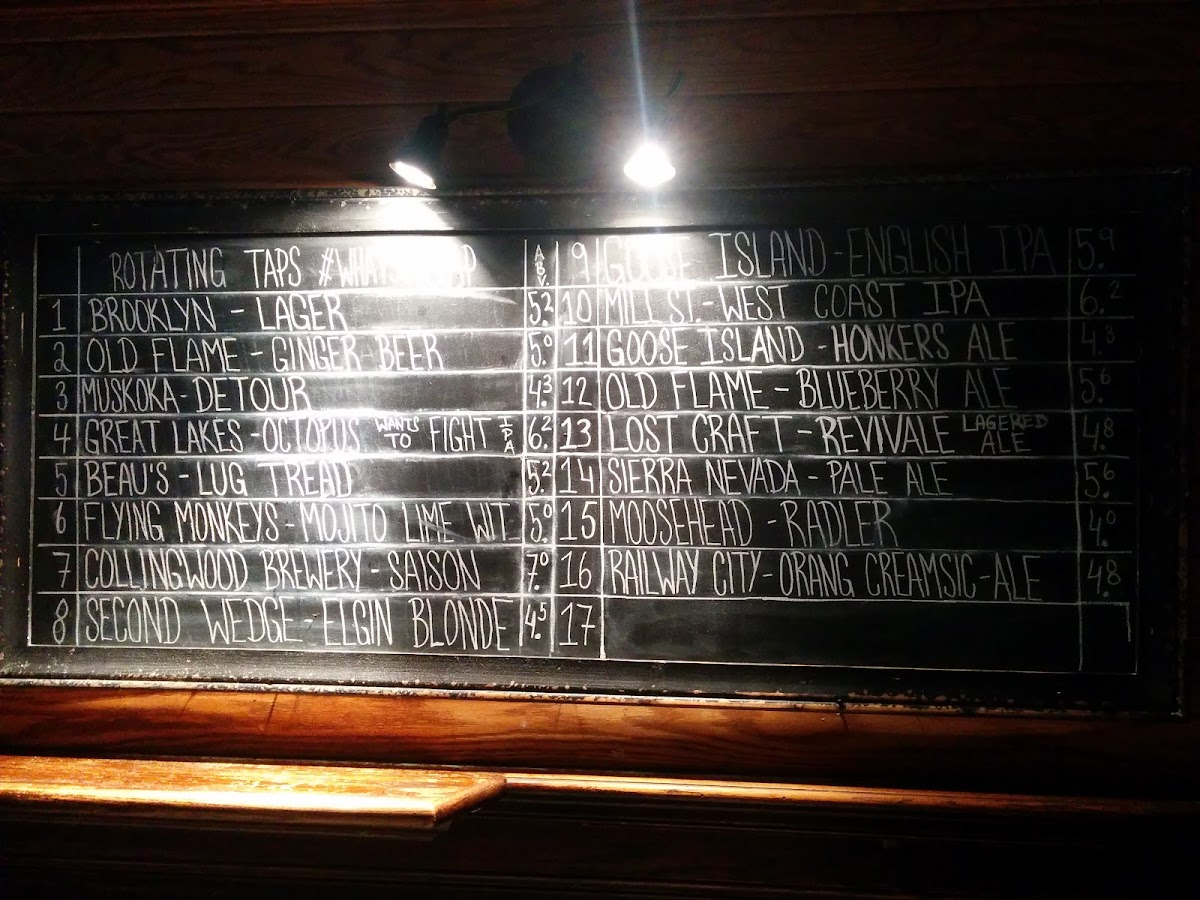 ROTATING TAPS ABV.
1 BROOKLYN - LAGER 5.2
2 OLD FLAME - GINGER BEER 5.0
3 MUSKOKA - DETOUR 4.3
4 GREAT LAKES - OCTOPUS WANTS TO FIGHT IPA 6.2
5 BEAU'S - LUG TREAD 5.2
6 FLYING MONKEYS - MOJITO LIME WIT 5.0
7 COLLINGWOOD BREWERY - SAISON 7.0
8 SECOND WEDGE - ELGIN BLONDE 4.5
9 GOOSE ISLAND - ENGLISH IPA 5.9
10 MILL ST. - WEST COAST IPA 6.2
11 GOOSE ISLAND - HONKERS ALE 4.3
12 OLD FLAME - BLUEBERRY ALE 5.6
13 LOST CRAFT - REVIVALE LAGERED ALE 4.8
14 SIERRA NEVADA - PALE ALE 5.6
15 MOOSEHEAD - RADLER 4.0
16 RAILWAY CITY - ORANG CREAMSIC - ALE 4.8
17